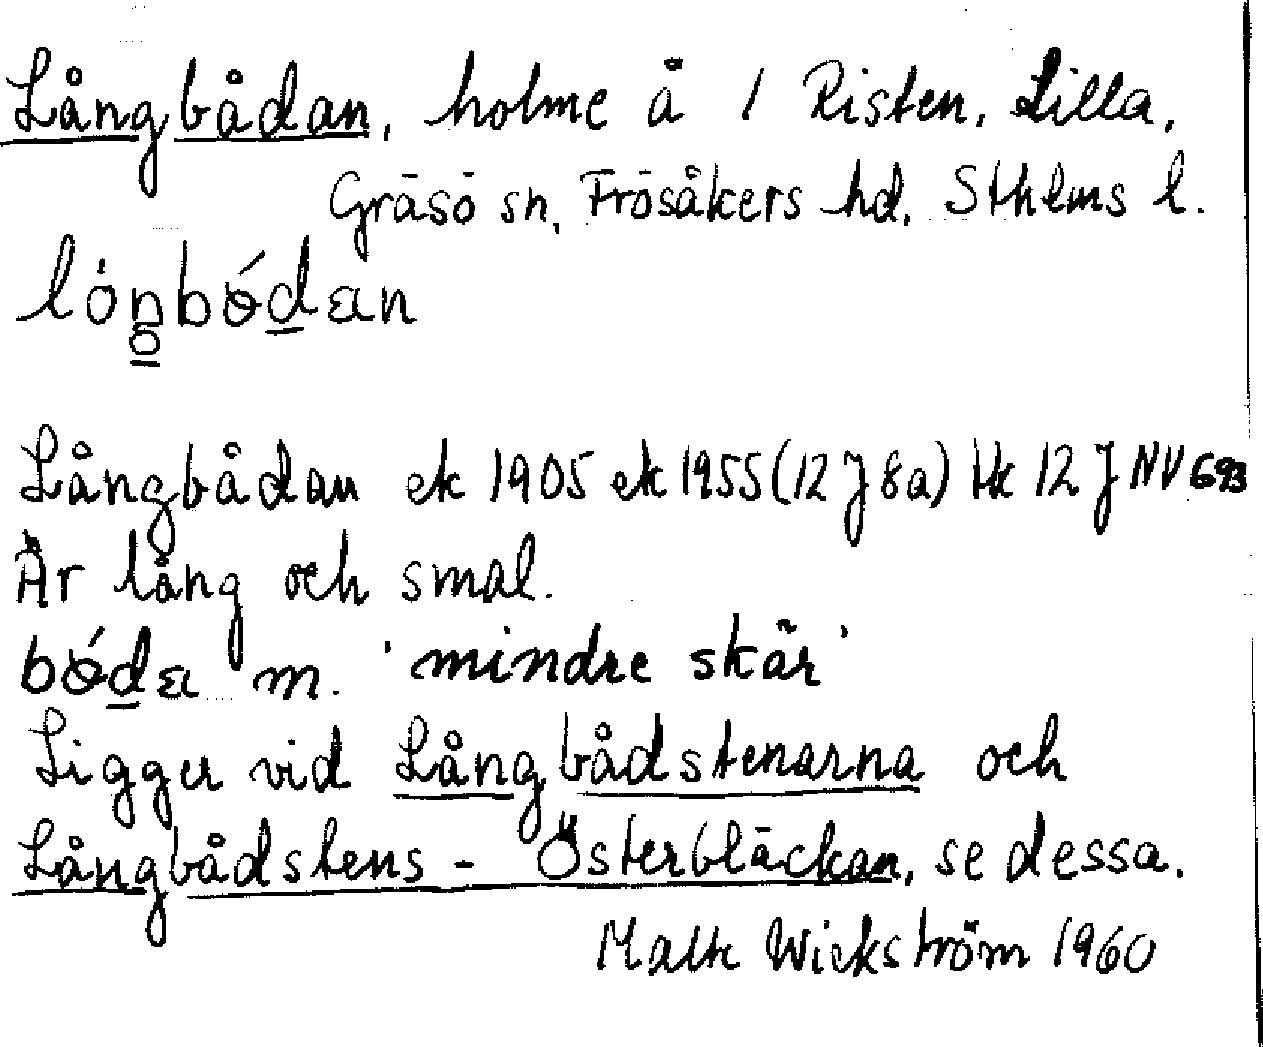 Långbådan, holme å 1 Risten, Lilla,
Gräsö sn, Frösåkers hd, Sthlms l.
Långbådan ek 1905 ek 1955 (12 J 8a) Hk 12 J NV 693
Är lång och smal.
m. 'mindre skär'
Ligger vid Långbådstenarna och
Långbådstens - Österbläckan, se dessa.
Malte Wickström 1960